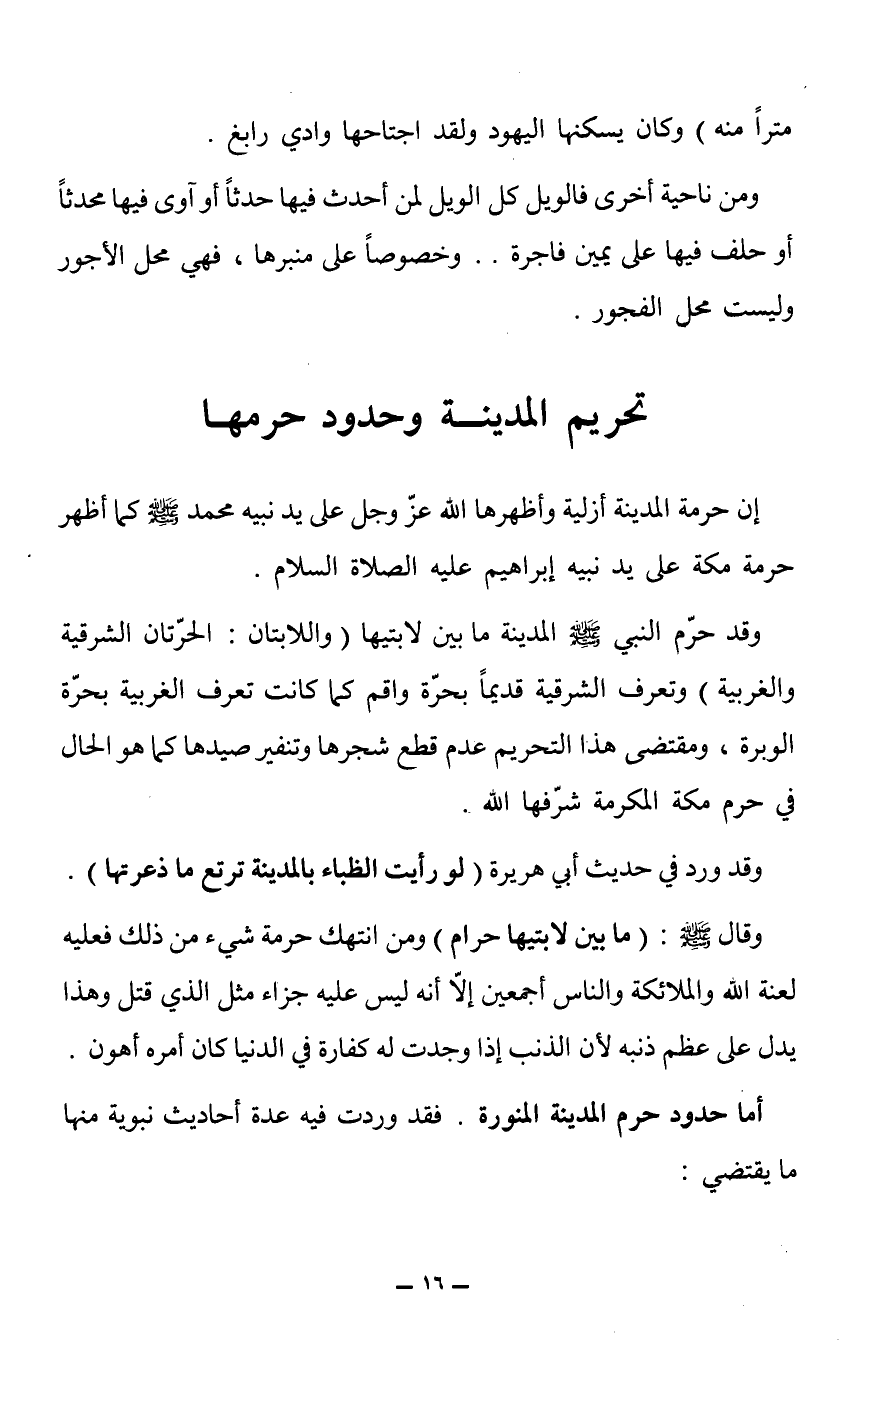 متراً منه ) وكان يسكنها اليهود ولقد اجتاحها وادي رابغ .
ومن ناحية أخرى فالويل كل الويل لمن أحدث فيها حدثاً أو آوى فيها محدثاً
أو حلف فيها على يمين فاجرة . . وخصوصاً على منبرها ، فهي محل الأجور
وليست محل الفجور .
تحريم المدينـــة وحدود حرمهـا
إن حرمة المدينة أزلية وأظهرها الله عزّ وجل على يد نبيه محمد ﷺ كما أظهر
حرمة مكة على يد نبيه إبراهيم عليه الصلاة السلام .
وقد حرّم النبي ﷺ المدينة ما بين لابتيها ( واللابتان : الحرّتان الشرقية
والغربية ) وتعرف الشرقية قديماً بحرّة واقم كما كانت تعرف الغربية بحرّة
الوبرة ، ومقتضى هذا التحريم عدم قطع شجرها وتنفير صيدها كما هو الحال
في حرم مكة المكرمة شرّفها الله .
وقد ورد في حديث أبي هريرة ( لو رأيت الظباء بالمدينة ترتع ما ذعرتها ) .
وقال ﷺ : ( ما بين لابتيها حرام ) ومن انتهك حرمة شيء من ذلك فعليه
لعنة الله والملائكة والناس أجمعين إلّا أنه ليس عليه جزاء مثل الذي قتل وهذا
يدل على عظم ذنبه لأن الذنب إذا وجدت له كفارة في الدنيا كان أمره أهون .
أما حدود حرم المدينة المنورة . فقد وردت فيه عدة أحاديث نبوية منها
ما يقتضي :
— ١٦ —